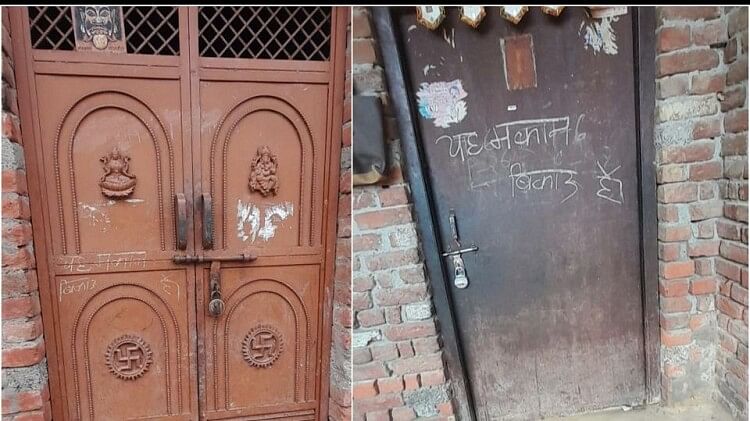 यह मकान
बिकाउ है
यह मकान
बिकाउ है